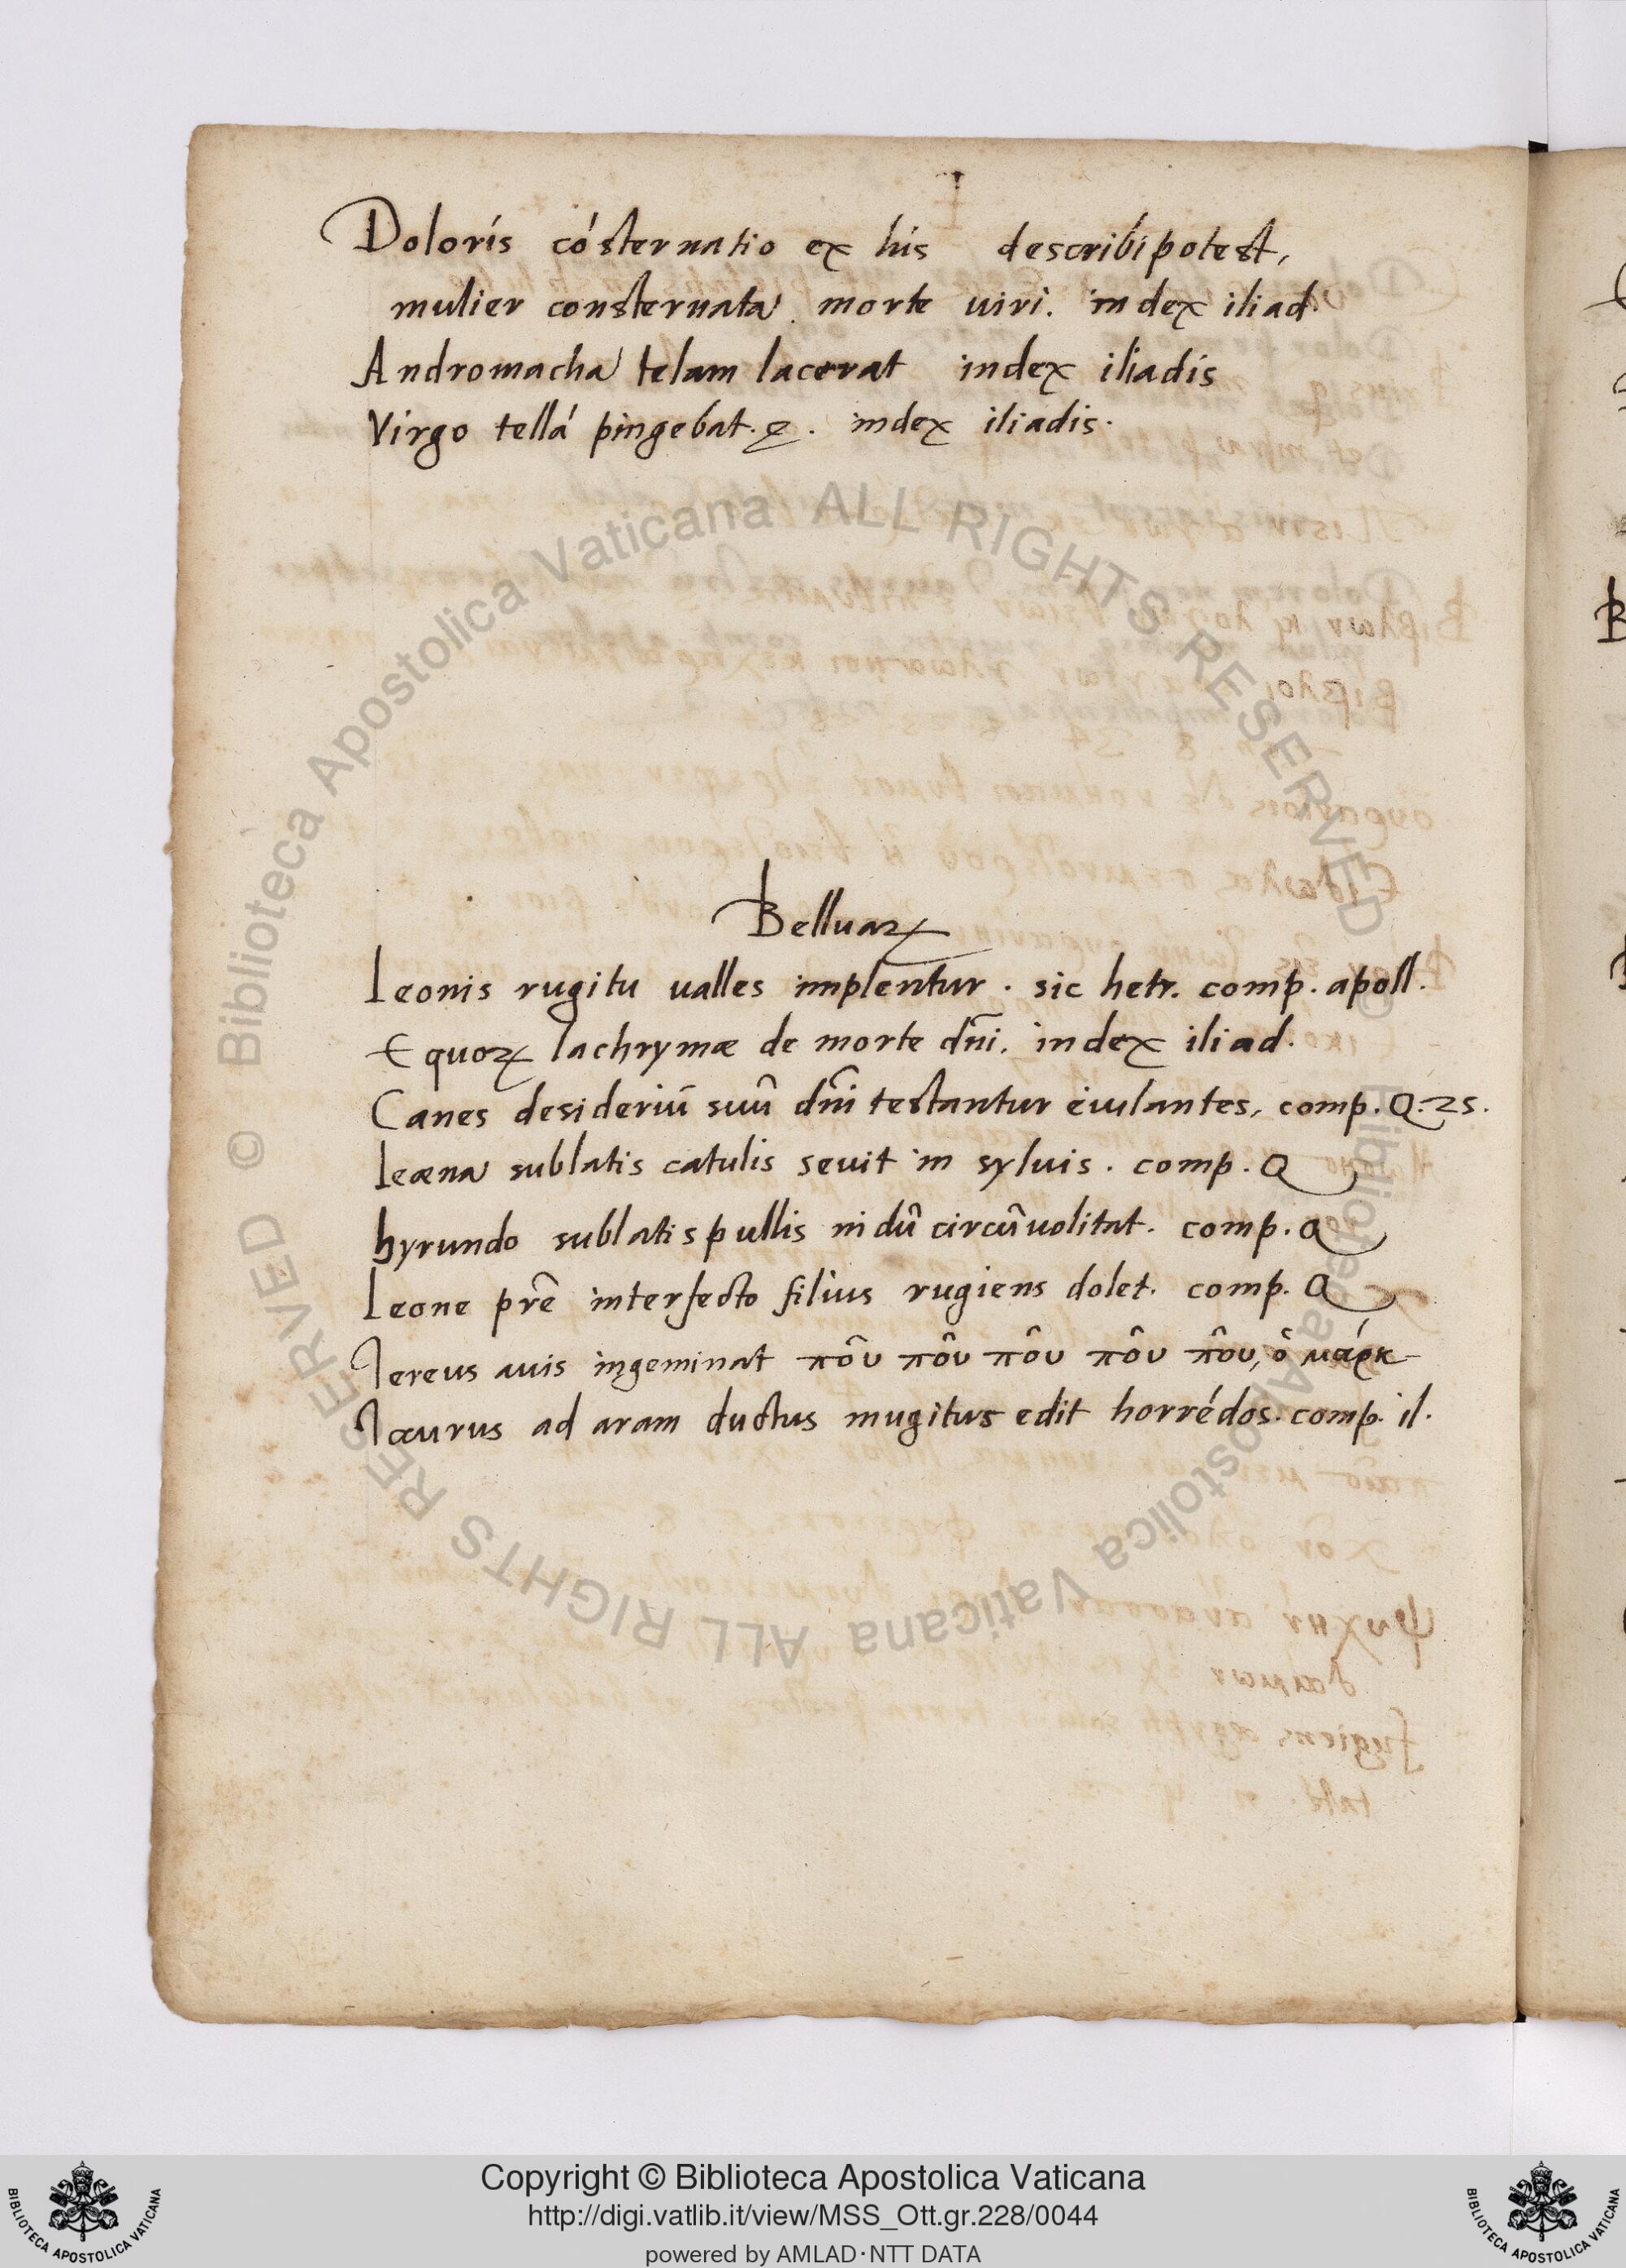 Doloris cósternatio ex his describi potest,
mulier consternata morte uiri. index iliad
Andromacha telam lacerat index iliadis
Virgo tellá pingebat. ę. index iliadis.
Belluaꝝ
Leonis rugitu ualles implentur. sic hetr. comp. apoll.
Equoꝝ lachrymæ de morte dñi. index iliad.
Canes desideriū suū dñi testantur eiulantes, comp. Q. 25.
leæna sublatis catulis seuit in syluis. comp. Q
hyrundo sublatis pullis nidū circūuolitat. comp. Q
Leone pr̄e interfecto filius rugiens dolet. comp. Q
Tereus auis ingeminat ποῦ ποῦ ποῦ ποῦ ποῦ, ὁ μάρκ
Taurus ad aram ductus mugitus edit horrédos. comp. il.
© Biblioteca Apostolica Vaticana ALL RIGHTS RESERVED
© Biblioteca Apostolica Vaticana ALL RIGHTS RESERVED
Copyright © Biblioteca Apostolica Vaticana
http://digi.vatlib.it/view/MSS_Ott.gr.228/0044
powered by AMLAD·NTT DATA
BIBLIOTECA APOSTOLICA VATICANA
BIBLIOTECA APOSTOLICA VATICANA